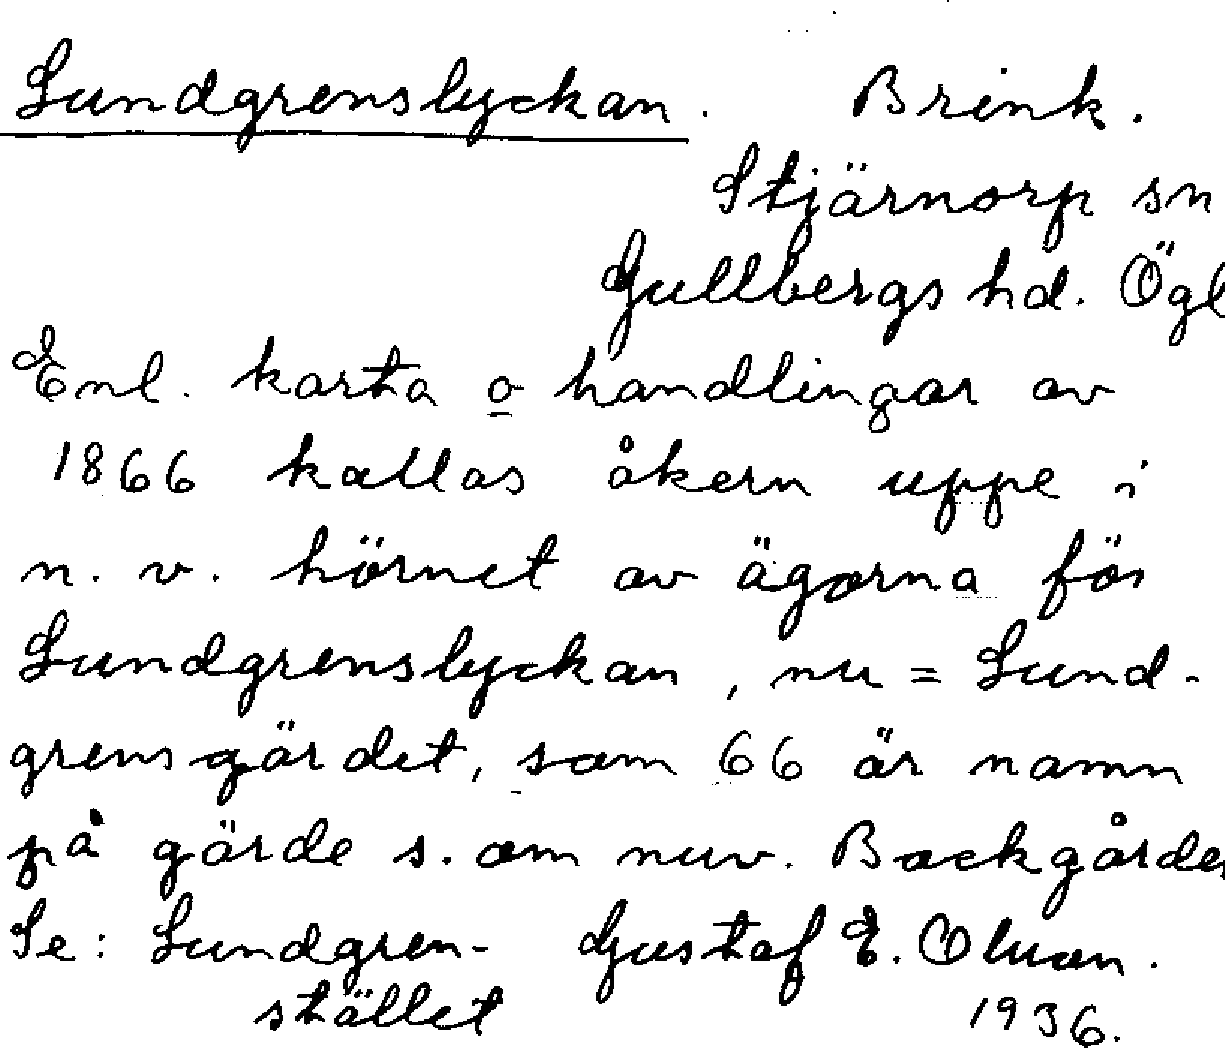 Lundgrenslyckan. Brink.
Stjärnorp sn
Gullbergs hd. Ögl
Enl. karta o handlingar av
1866 kallas åkern uppe i
n. v. hörnet av ägorna för
Lundgrenslyckan, nu = Lund-
grensgärdet, som 66 är namn
på gärde s. om nuv. Backgården
Se: Lundgren- Gustaf E. Olsson.
stället 1936.